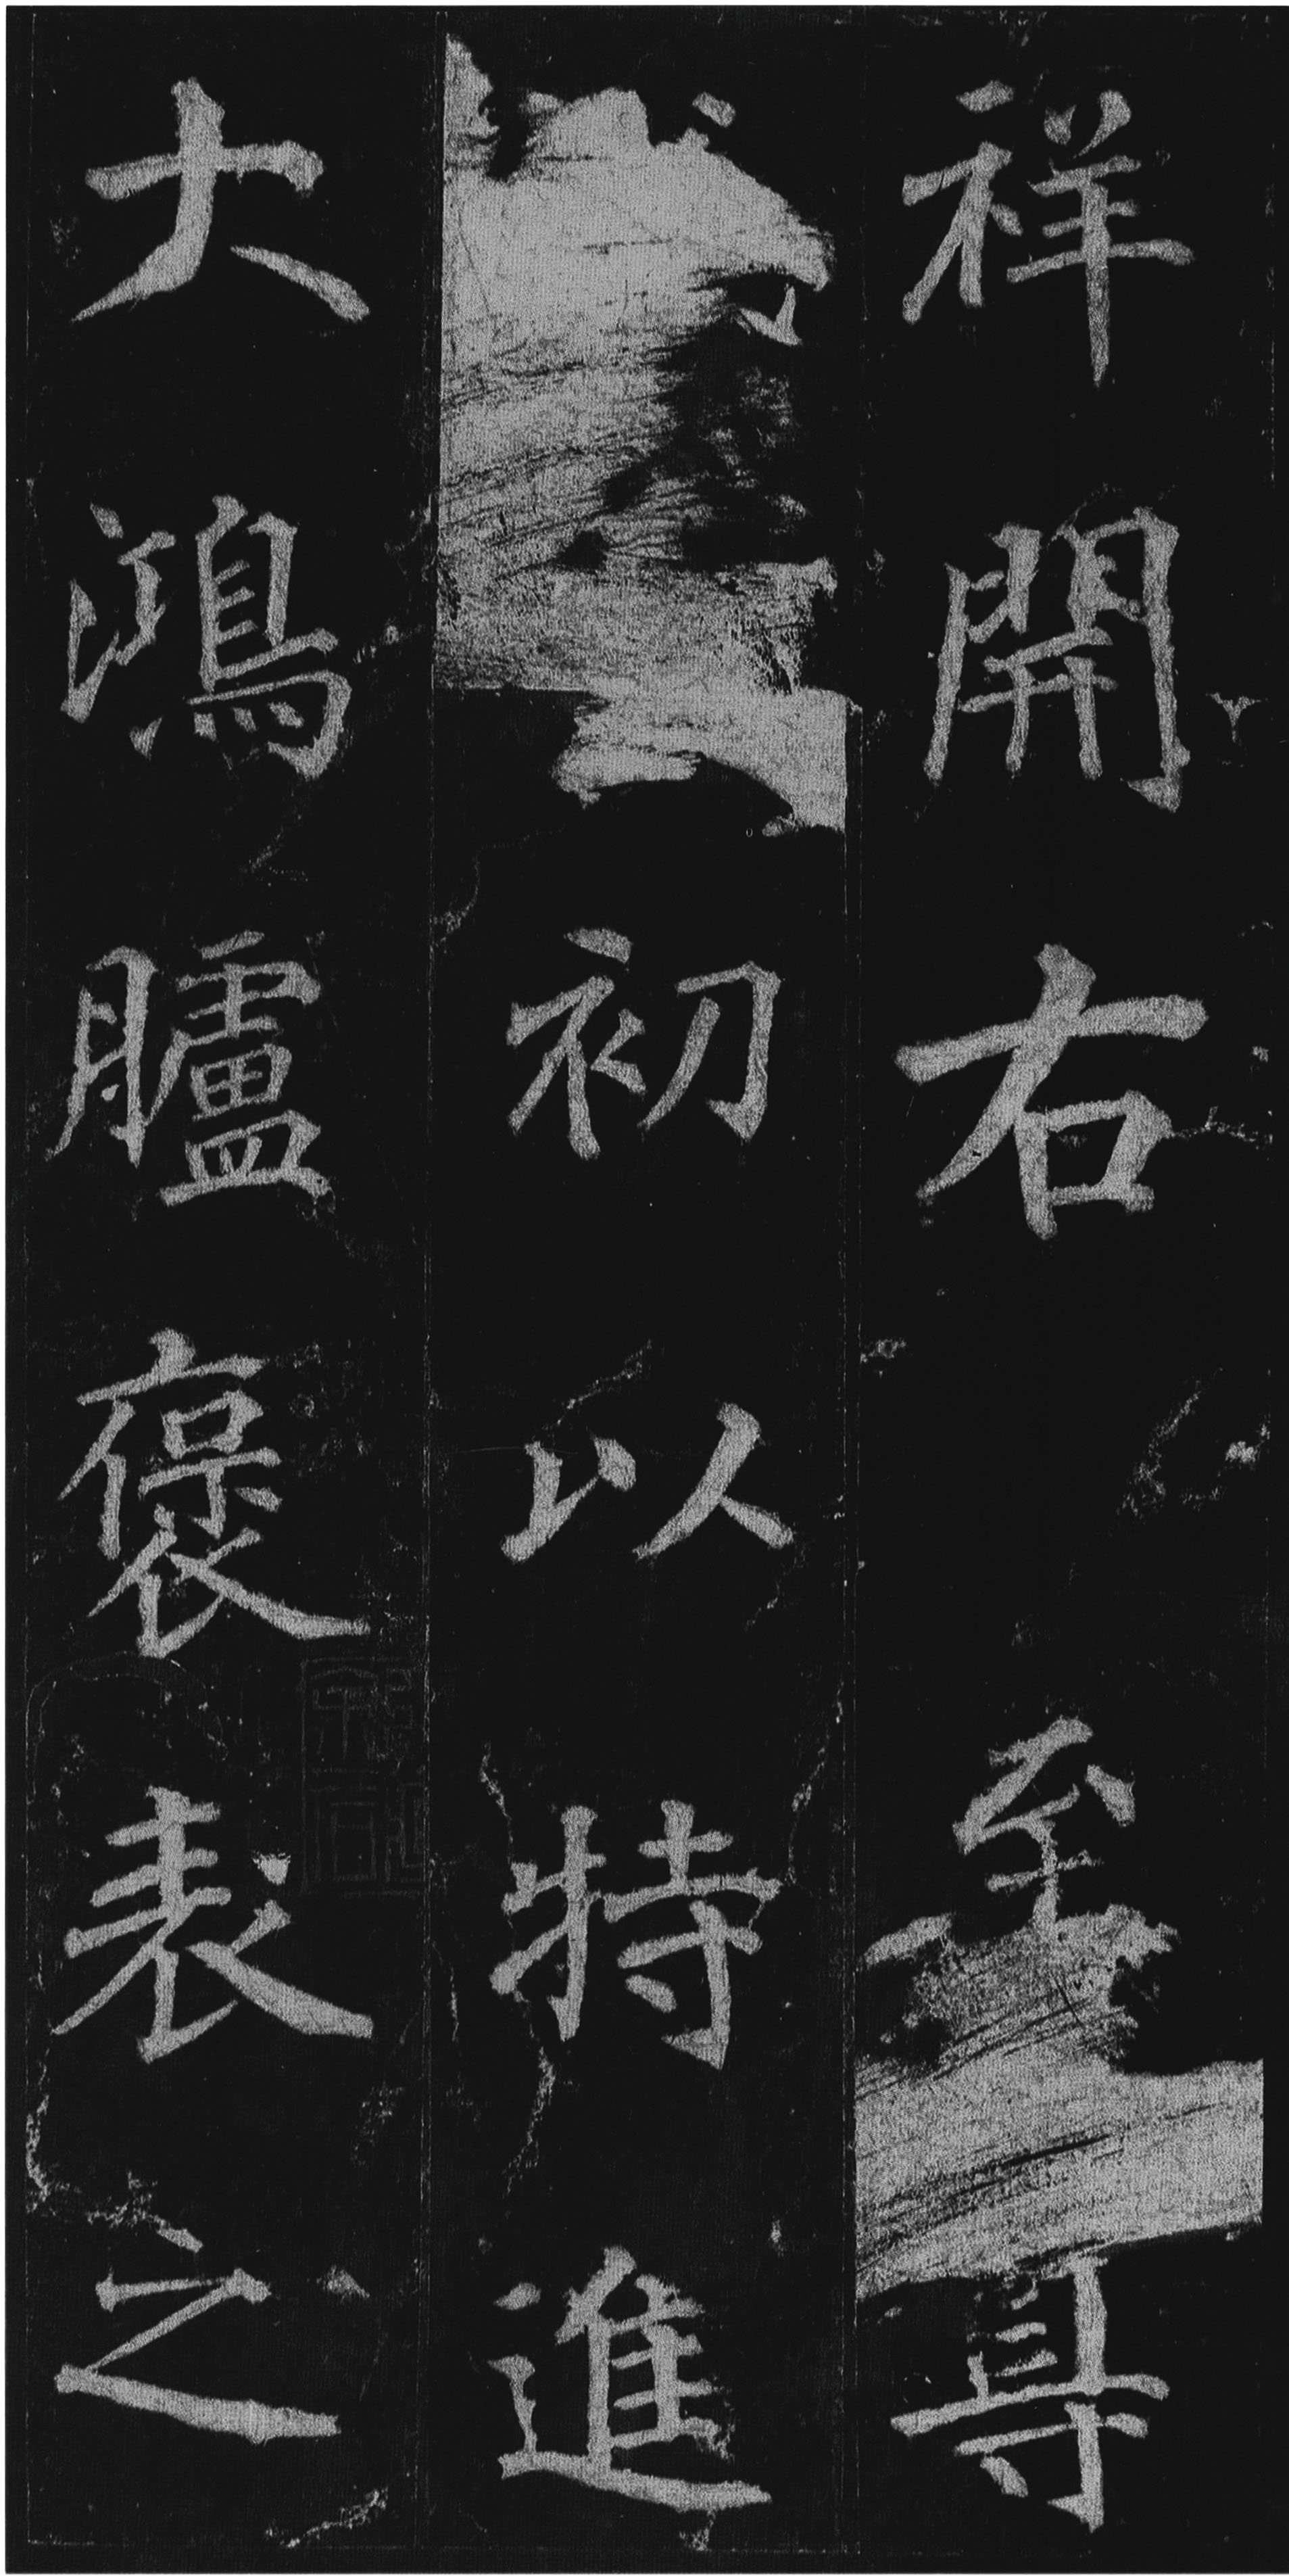 祥開右至尊
初以特進
大鴻臚褒表之